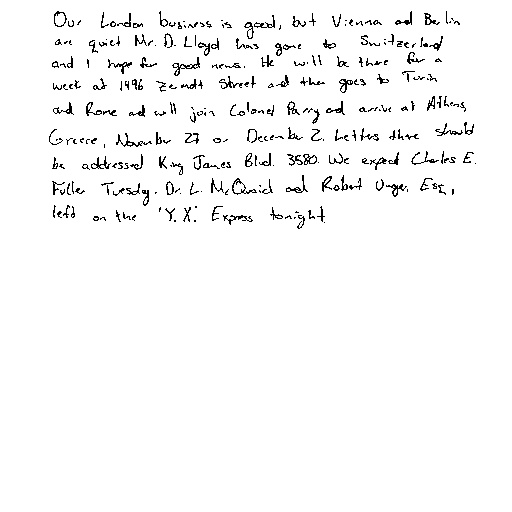 Our London business is good, but Vienna and Berlin
are quiet Mr. D. Lloyd has gone to Switzerland
and I hope for good news. He will be there for a
week at 1496 Zermdt Street and then goes to Turin
and Rome and will join Colonel Parry and arrive at Athens,
Greece, November 27 or December 2. Letters there should
be addressed King James Blvd. 3580. We expect Charles E.
Fuller Tuesday. Dr. L. McQuaid and Robert Unger, Esq.,
left on the 'Y.X.' Express tonight